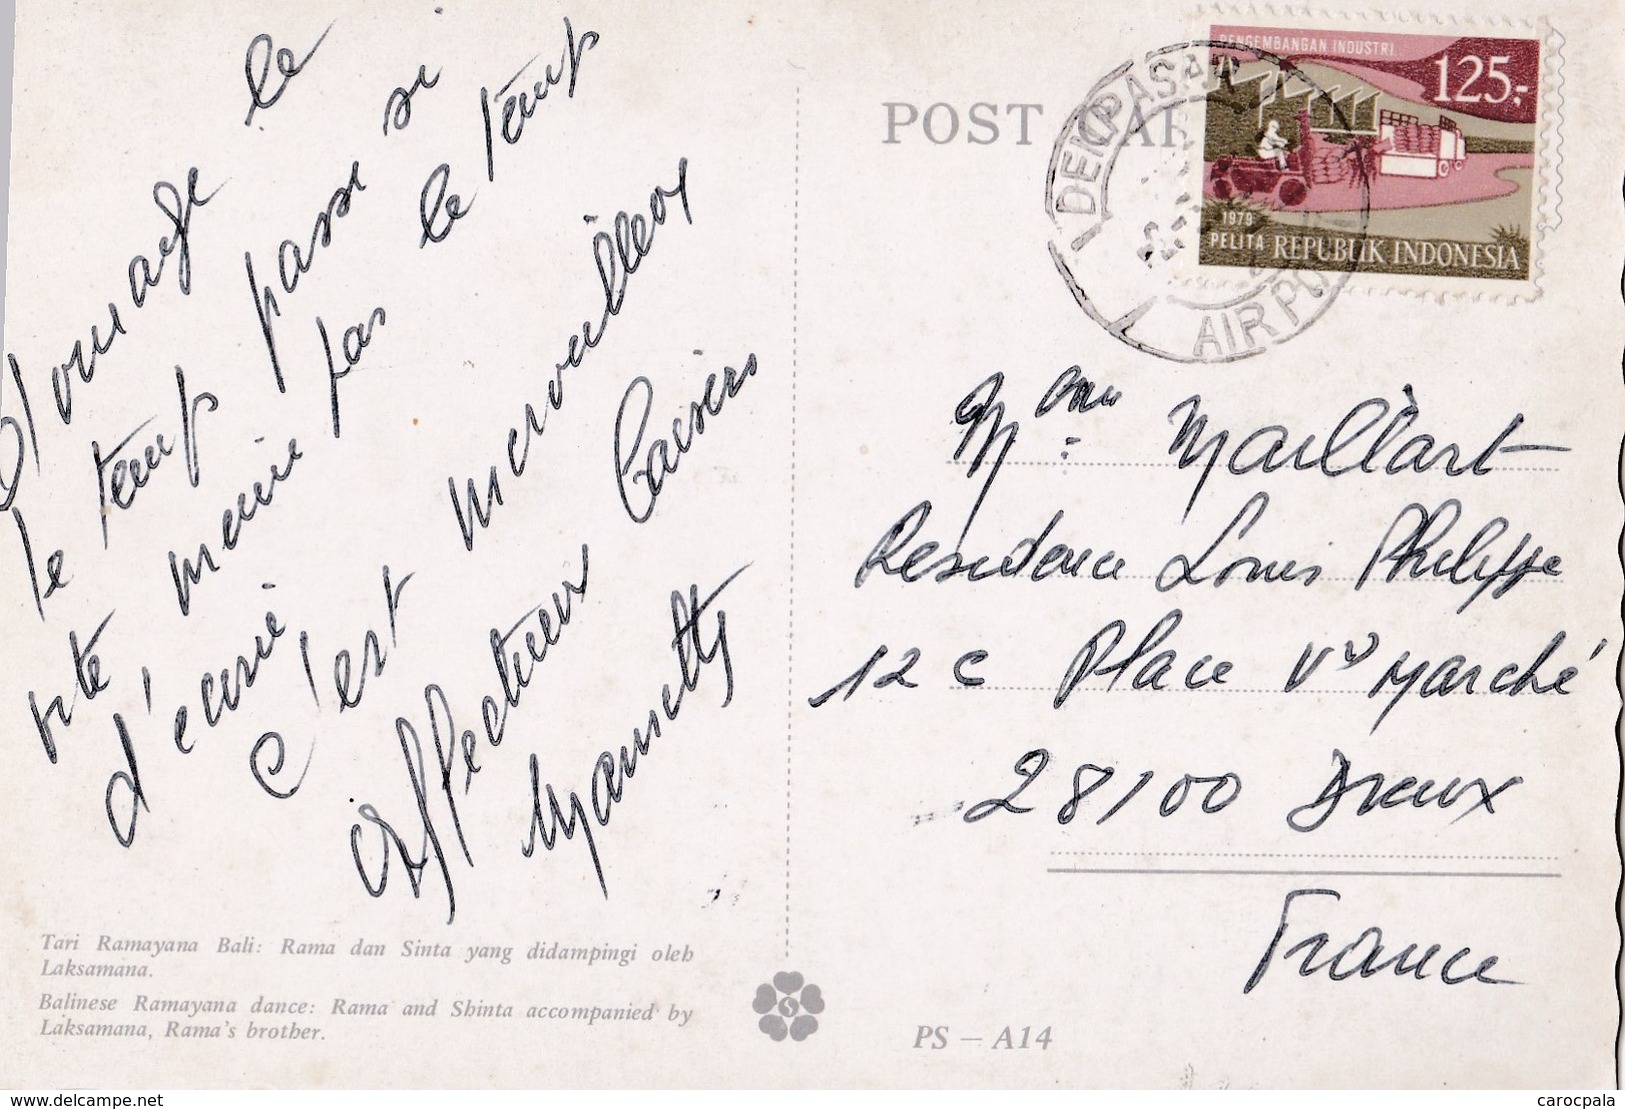 Dommage le
le temps passe si
vite même pas le temps
d'écrire
C'est merveilleux
Affectueux baisers
Tari Ramayana Bali: Rama dan Sinta yang didampingi oleh
Laksamana.
Balinese Ramayana dance: Rama and Shinta accompanied by
Laksamana, Rama's brother.
POST CAR
PENGEMBANGAN INDUSTRI
125,-
1979
PELITA REPUBLIK INDONESIA
DENPASAR
AIRPO
Mme Maillart
Residence Louis Philippe
12 C Place Vx Marché
28100 Dreux
France
PS — A14
www.delcampe.net
carocpala